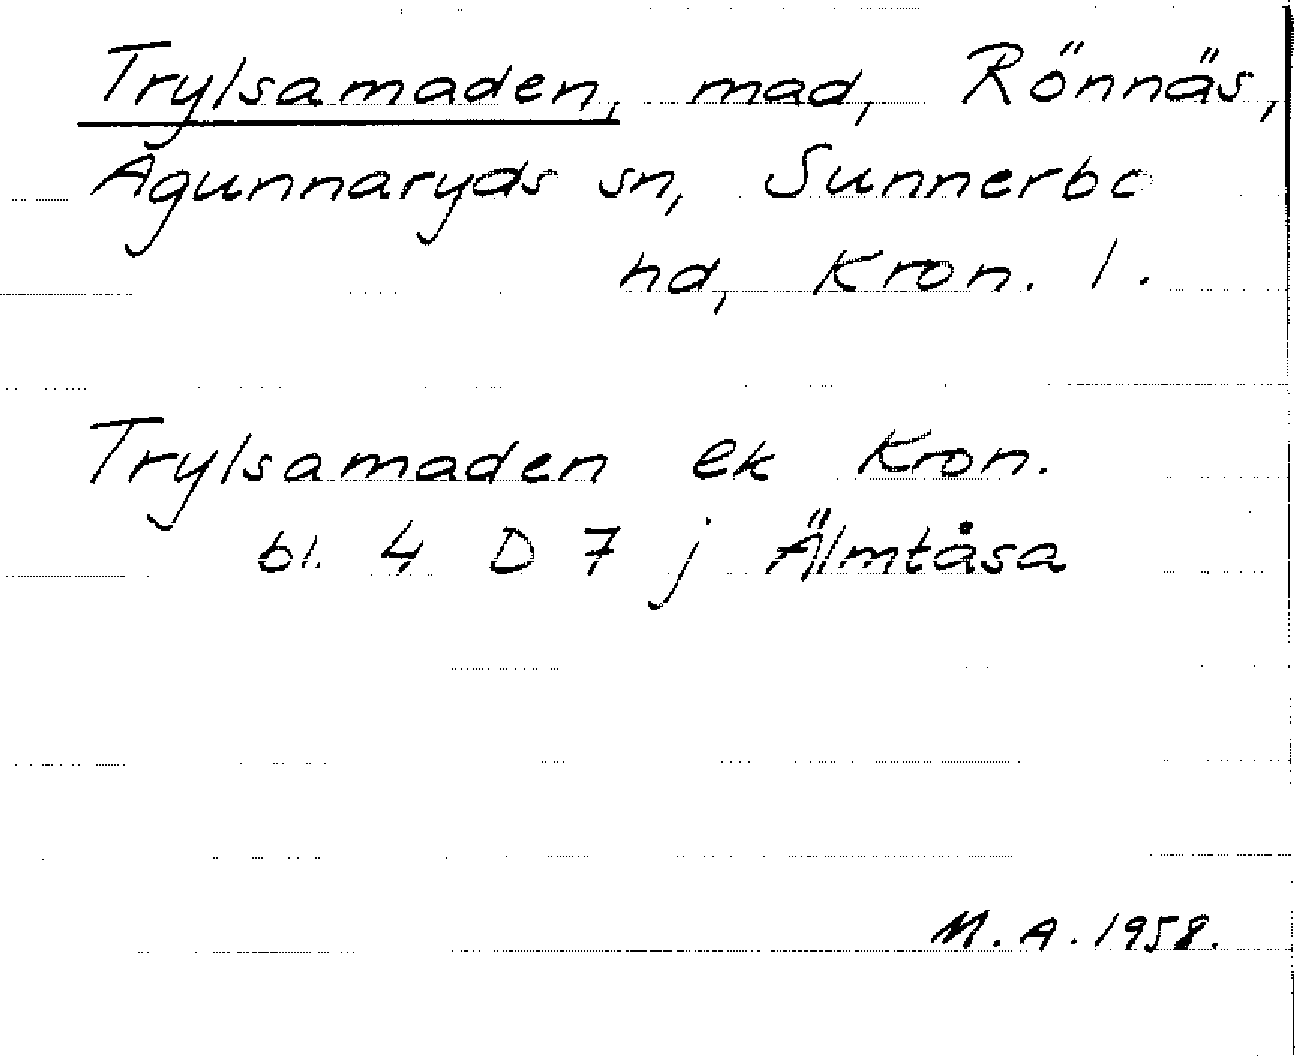 Trylsamaden, mad, Rönnäs,
Agunnaryds sn, Sunnerbo
hd, Kron. l.
Trylsamaden ek Kron.
bl. 4 D 7 j Älmtåsa
M. A. 1958.